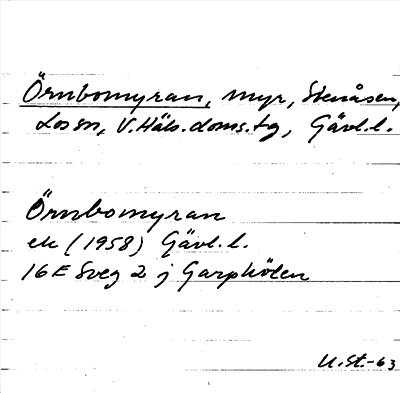 Örnbomyran, myr, Stenåsen,
Los sn, V. Häls. doms. tg, Gävl. l.
Örnbomyran
ek (1958) Gävl. l.
16E Sveg 2 j Garphöten
U. St. -63